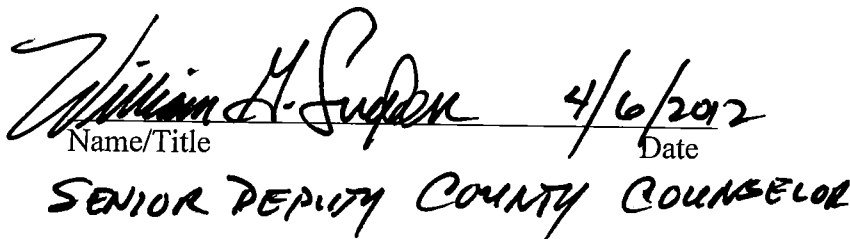 William G. Snyder 4/6/2012
Name/Title Date
SENIOR DEPUTY COUNTY COUNSELOR